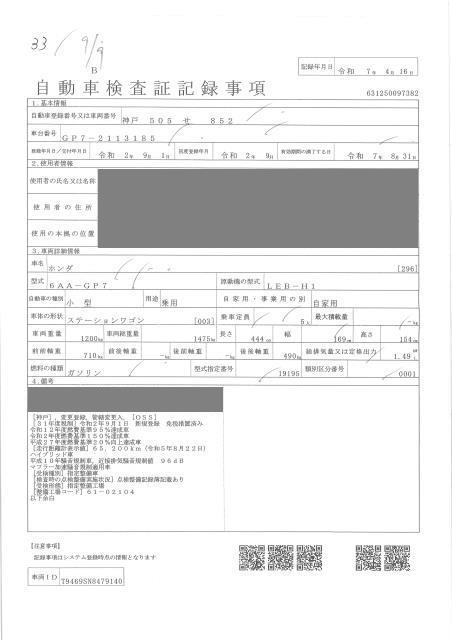 33
9/9
B
記録年月日 令和 7年 4月 16日
自動車検査証記録事項
631250097382
1.基本情報
自動車登録番号又は車両番号 神戸 505 せ 852
車台番号 GP7-2113185
登録年月日/交付年月日 令和 2年 9月 1日 初度登録年月 令和 2年 9月 有効期間の満了する日 令和 7年 8月 31日
2.使用者情報
使用者の氏名又は名称
使用者の住所
使用の本拠の位置
3.車両詳細情報
車名 ホンダ [296]
型式 6AA-GP7 原動機の型式 LEB-H1
自動車の種別 小型 用途 乗用 自家用・事業用の別 自家用
車体の形状 ステーションワゴン [003] 乗車定員 5人 最大積載量 -kg
車両重量 1200kg 車両総重量 1475kg 長さ 444cm 幅 169cm 高さ 154cm
前前軸重 710kg 前後軸重 -kg 後前軸重 -kg 後後軸重 490kg 総排気量又は定格出力 1.49L
燃料の種類 ガソリン 型式指定番号 19195 類別区分番号 0001
4.備考
[神戸],変更登録,管轄変更入,[OSS]
[31年度税制]令和2年9月1日 新規登録 免税措置済み
令和12年度燃費基準95%達成車
令和2年度燃費基準150%達成車
平成27年度燃費基準20%向上達成車
[走行距離計表示値]65,200km(令和5年8月22日)
ハイブリッド車
平成10年騒音規制車,近接排気騒音規制値 96dB
マフラー加速騒音規制適用車
[受検種別]指定整備車
[検査時の点検整備実施状況]点検整備記録簿記載あり
[受検形態]指定整備工場
[整備工場コード]61-02104
以下余白
【注意事項】
記載事項はシステム登録時点の情報となります
車両ID T9469SN8479140